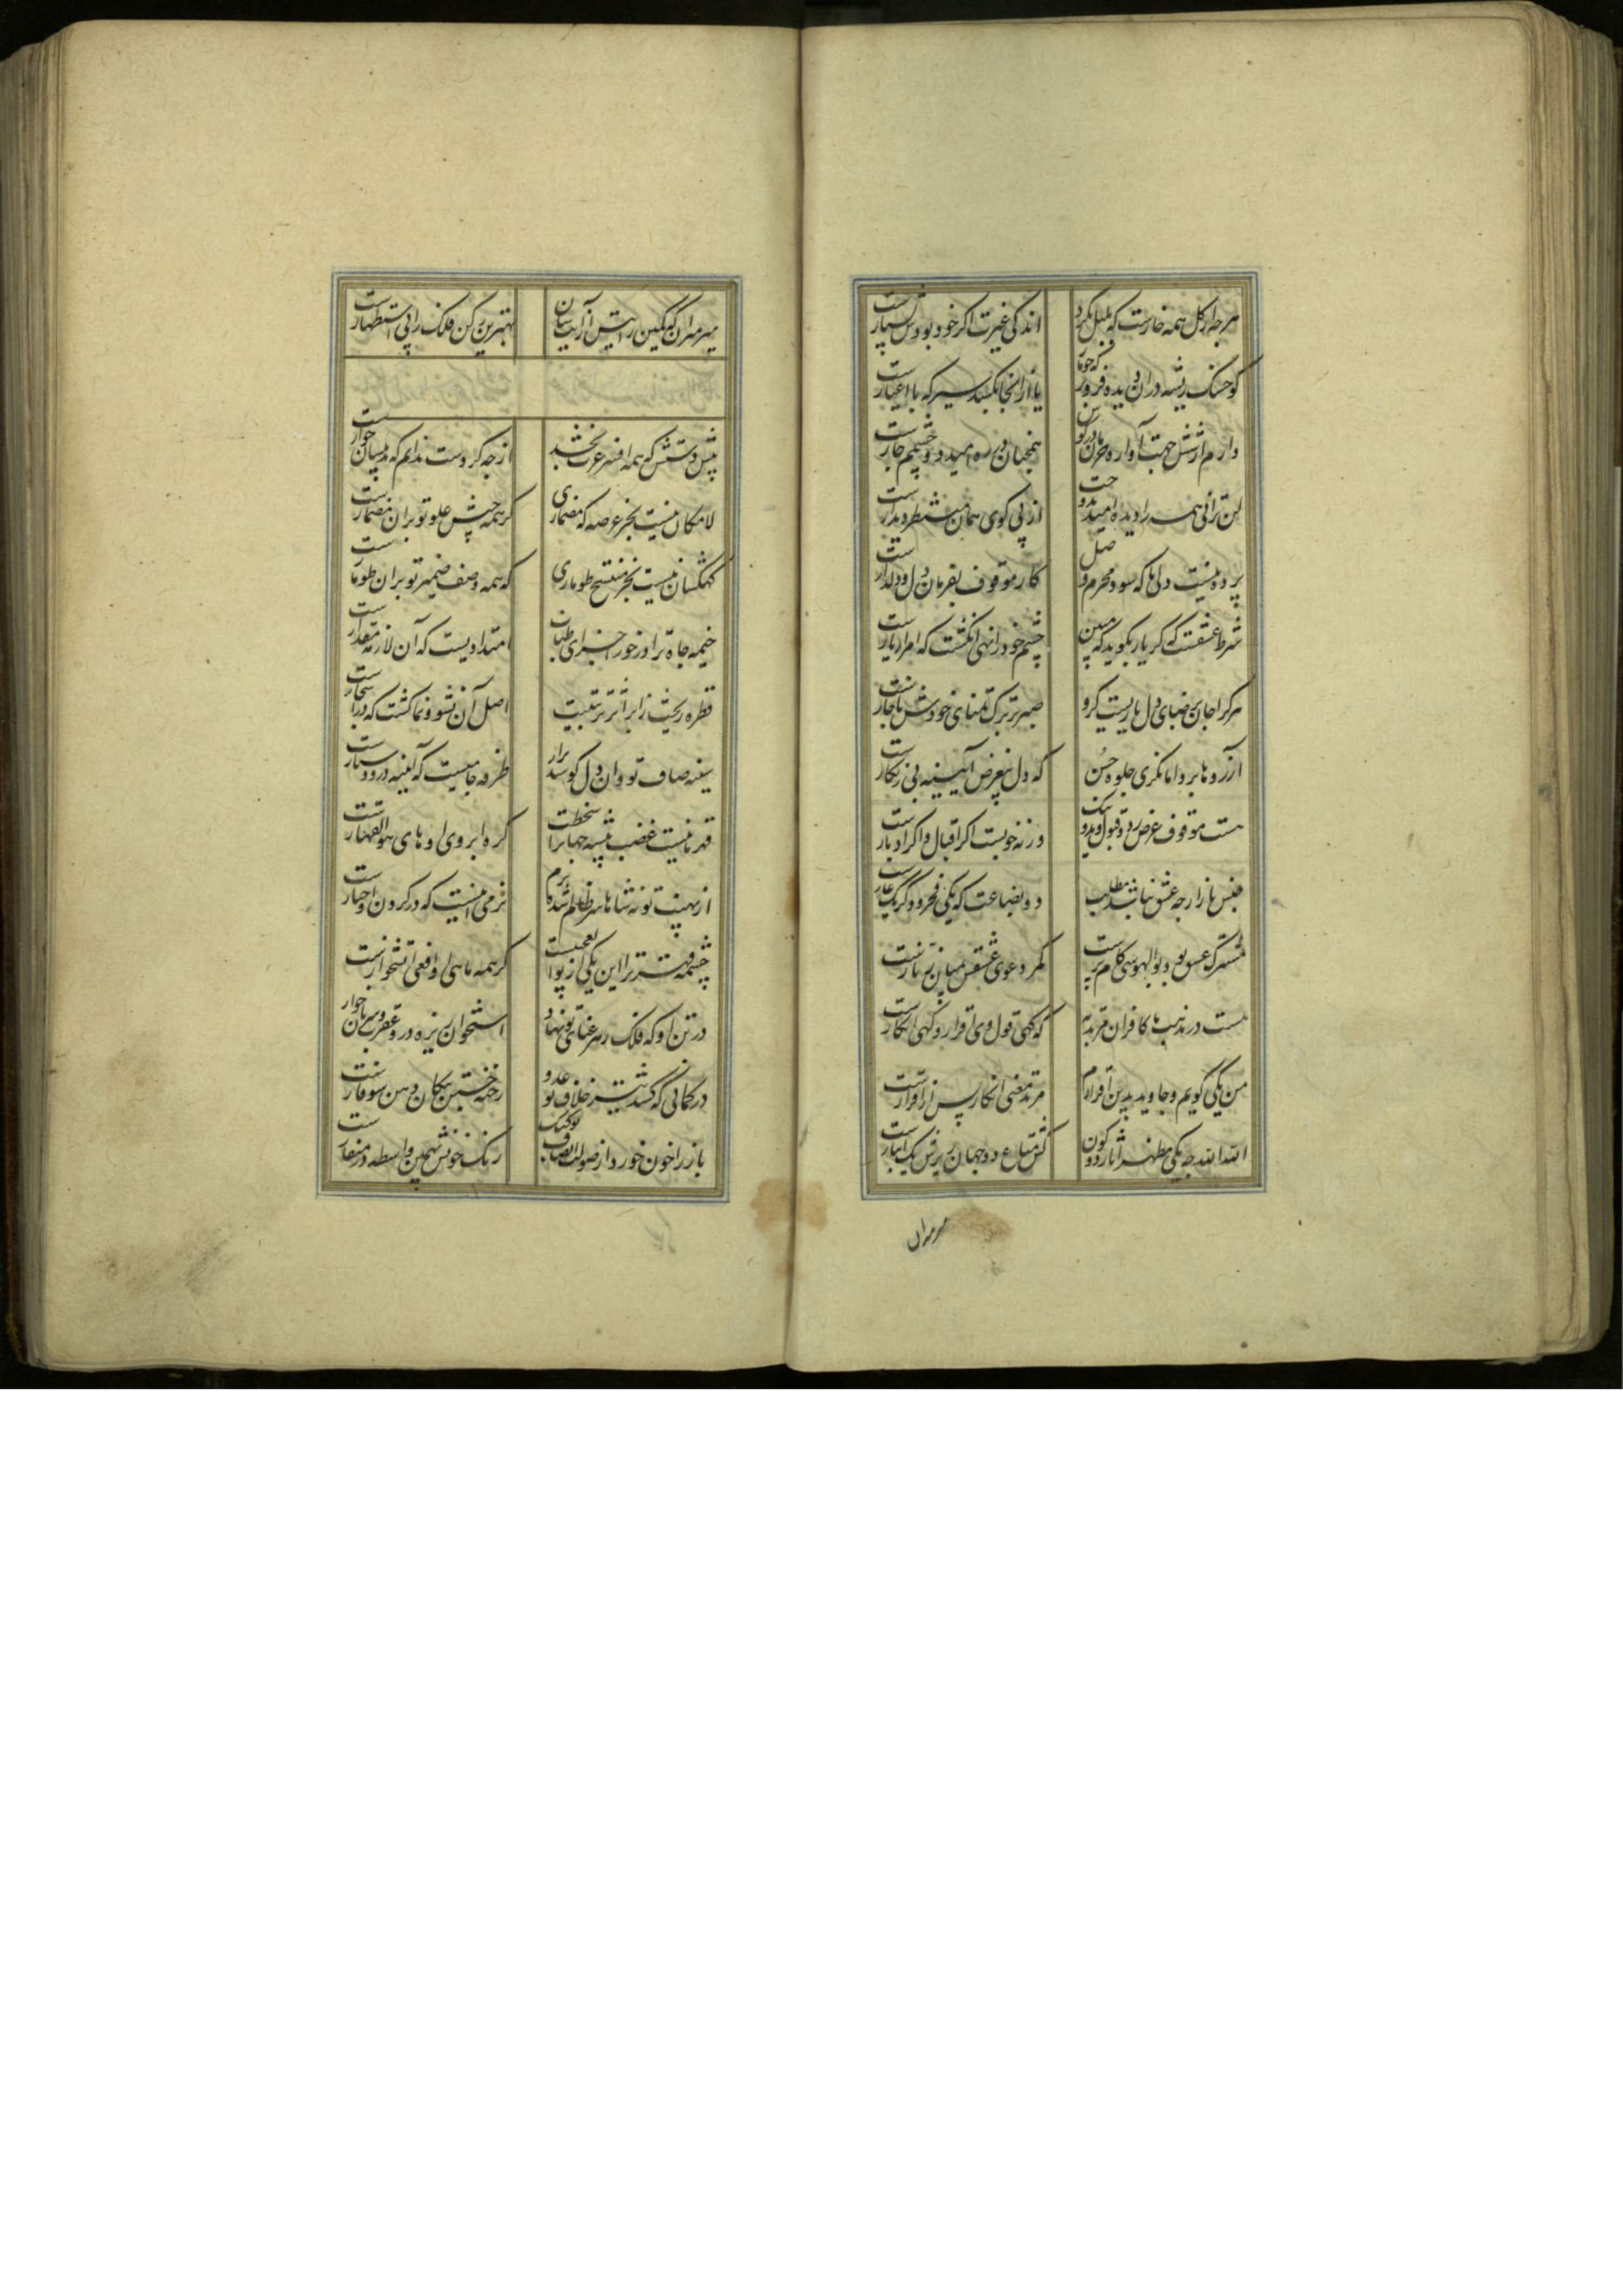 هر چه از گل همه خارست که بلبل نگرد
اندکی غیرت اگر خود بودش بسیارست
کو خسک ریشه در آن دیده فرو بر که چو ما
یار از آنجا نکند سیر که با اغیارست
دارم از شش جهت آواره
همچنان در ره امید دو چشمم چارست
لن ترانی همه را دیده امید بدوخت
ارنی گوی همان منتظر دیدارست
پرده نیست ولی تا که سود محرم وصل
کار موقوف بفرمان دل و دلدارست
شرط عشقست که گر یار بگوید که مبین
چشم خود را ننهی انگشت که امر از یارست
هر کرا جان برضای دل یاریست گرو
صبر بر ترک تمنای خودش ناچارست
آرزوها برو اما نگری جلوه حسن
که دل بی غرض آیینه بی زنگارست
هست موقوف غرض رد و قبول بد و نیک
ورنه خوبست اگر اقبال و اگر ادبارست
جنس بازارچه عشق نباشد مطلب
دو بضاعت که یکی فخر و دگر یک عارست
مشترک عشق بود بوالهوسی کام پرست
کمر دعوی عشقش بمیان زنارست
هست در مذهب ما کافر آن مرتد به
که گهی قول وی اقرار و گهی انکارست
من یکی گویم و جاوید بدین اقرارم
مرتد معنی انکار پس از اقرارست
الله الله چه یکی مظهر آثار دو کون
کش متاع دو جهان ریزش یک ایثارست
میرمیران
میرمیران که کمین رایتش از آیت شان
بهترین رکن فلک را پی استظهارست
پیش دستش که همه افسر عزت بخشد
از چه کردست ندانم که میان خوارست
لامکان نیست بجز عرصه که مضماری
گر همه جیش علو تو بر آن مضمارست
کهکشان نیست بجز منتسخ طوماری
که همه وصف ضمیر تو بر آن طومارست
خیمه جاه ترا درخور اجزای طناب
امتدادیست که آن لازمه مقدارست
قطره ریخت ز ابر اثر تربیتت
اصل آن نشو و نما گشت که در اشجارست
سینه صاف تو و آن دل کو
طرفه جامیست که آیینه درو
قهرمانیست غضب پیشه جهان را سخطت
گره ابروی او های هوالقهارست
از نهیب تو
نرمی نیست که در گردن او
چشمه قهر ترا این یکی از بوالعجبیست
گر همه ماهی او افعی آتشخوارست
در تن او که فلک زهر عنای تو نهاد
استخوان نیزه درو عقرب
در کمانی که کشد تیر خلاف تو عدو
رخنه جستن پیکان دهن سوفارست
باز را خون خورد از صولت انصاف تو کبک
رنگ خونش بهمین واسطه در منقارست